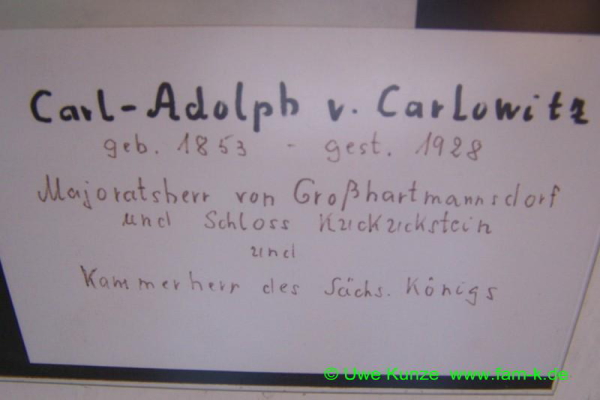 Carl-Adolph v. Carlowitz
geb. 1853 - gest. 1928
Majoratsherr von Großhartmannsdorf
und Schloss Kuckuckstein
und
Kammerherr des Sächs. Königs
© Uwe Kunze www.fam-k.de